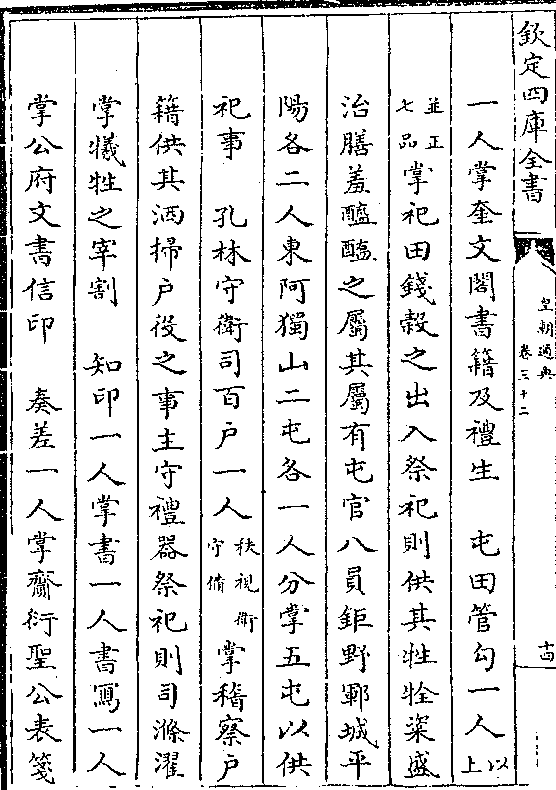 欽定四庫全書
皇朝通典
卷三十二
十四
一人掌奎文閣書籍及禮生　屯田管勾一人以上
並正七品掌祀田錢穀之出入祭祀則供其牲牷粢盛
治膳羞醯醢之屬其屬有屯官八員鉅野鄆城平
陽各二人東阿獨山二屯各一人分掌五屯以供
祀事　孔林守衛司百户一人秩視衛守備掌稽察户
籍供其洒掃户役之事主守禮器祭祀則司滌濯
掌犧牲之宰割　知印一人掌書一人書寫一人
掌公府文書信印　奏差一人掌齎衍聖公表箋